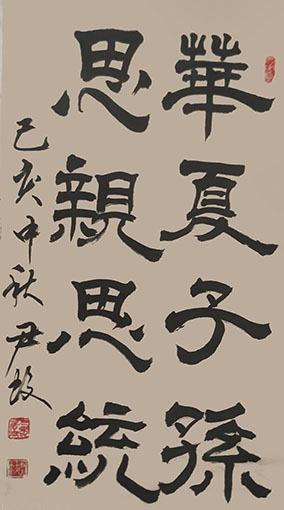 華夏子孫
思親思統
己亥中秋尹玫